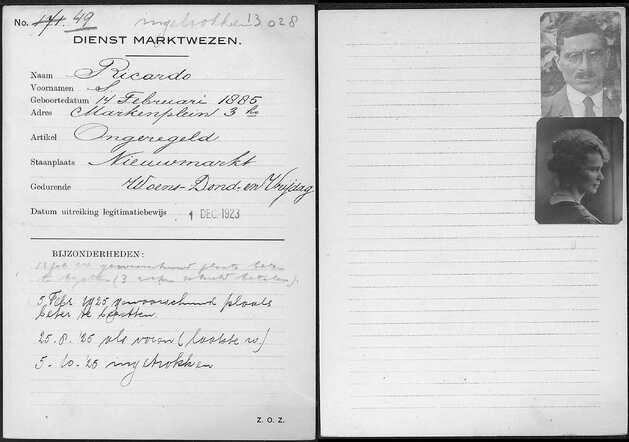 No. 171. 49 ingetrokken 13028
DIENST MARKTWEZEN.
Naam Ricardo
Voornamen S
Geboortedatum 14 Februari 1885
Adres Markenplein 3 hs
Artikel Ongeregeld
Staanplaats Nieuwmarkt
Gedurende Woens- Dond- en Vrijdag
Datum uitreiking legitimatiebewijs 1 DEC. 1923
BIJZONDERHEDEN:
gewaarschuwd plaats beter
te bezetten (3
5 Febr 1925 gewaarschuwd plaats
beter te bezetten
25.8.'25 als voren (laatste w)
5.10.'25 ingetrokken
Z. O. Z.